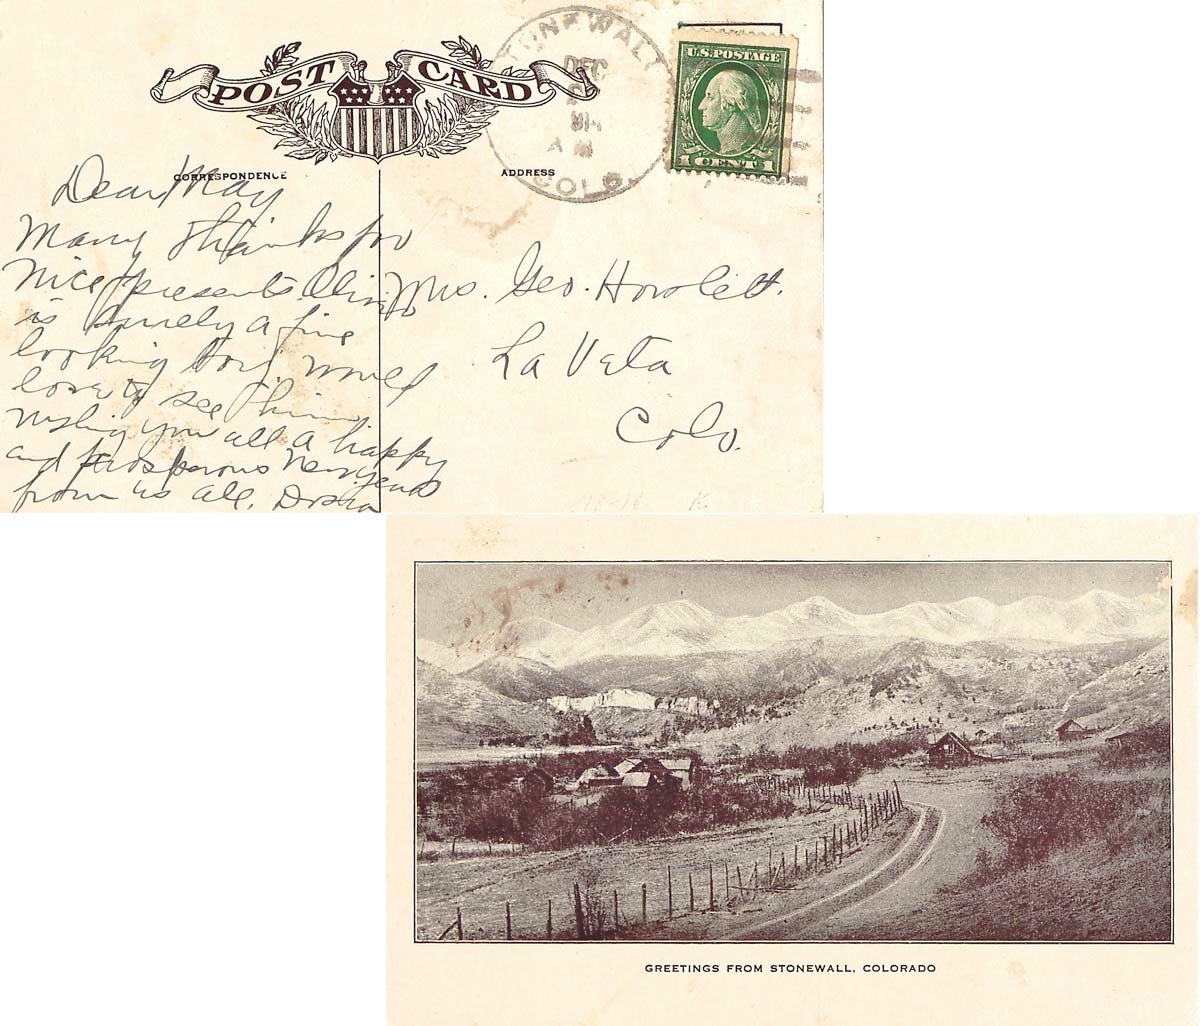 POST CARD
STONEWALL
DEC
A M
COLO.
U.S. POSTAGE
1 CENT 1
CORRESPONDENCE
ADDRESS
Dear May
Many thanks for
nice presents.
is surely a fine
looking boy. would
love to see him
wishing you all a happy
and prosperous New years
from us all.
Mrs. Geo. Howlett.
La Veta
Colo.
GREETINGS FROM STONEWALL, COLORADO